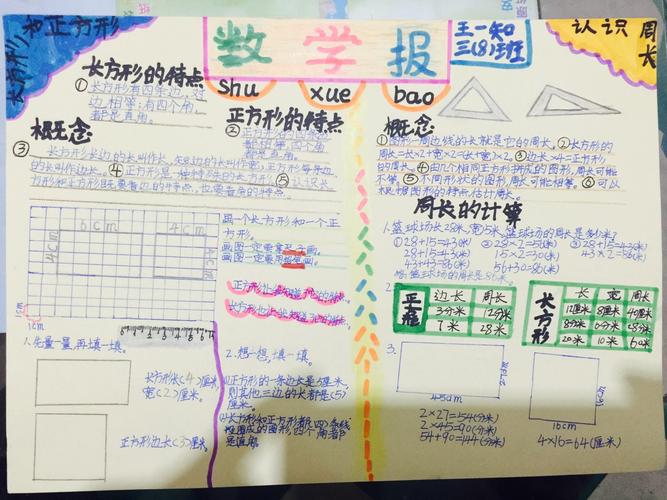 长方形和正方形
数学报
shu xue bao
王一知
三(8)班
认识周长
长方形的特点
①长方形有四条边,对
边相等;有四个角,
都是直角。
正方形的特点
概念
③长方形长边的长叫作长,短边的长叫作宽;正方形每条边
的长叫作边长。④正方形是一种特殊的长方形。⑤认识长
方形和正方形既要看边的特点,也要看角的特点。
6cm
4cm
4cm
画一个长方形和一个正
方形。
画图一定要拿尺子画。
画图一定要用铅笔画。
1cm
1cm
1.先量一量,再填一填。
长方形长(4)厘米
宽(2)厘米。
正方形边长(3)厘米。
2.想一想,填一填。
(1)正方形的一条边长是5厘米,
则其他三边的长都是(5)
厘米。
(2)长方形和正方形都是四条线
围成的图形,四个角都
是直角。
概念
①图形一周边线的长就是它的周长。②长方形的
周长=长×2+宽×2=(长+宽)×2。③边长×4=正方形
的周长。④由几个相同正方形拼成的图形,周长可能
不等。⑤不同形状的图形,周长可能相等。⑥可以
根据图形的特点,估计周长。
周长的计算
1.篮球场长28米,宽15米,篮球场的周长是多少米?
①28+15=43(米) ②28×2=56(米) ③28+15=43(米)
28+15=43(米) 15×2=30(米) 43×2=86(米)
43+43=86(米) 56+30=86(米)
答:篮球场的周长是86米。
2.
正方形 边长 周长
3分米 12分米
7米 28米
长方形 长 宽 周长
12厘米 8厘米 40厘米
20米 10米 60米
3.
45dm
2×27=54(分米)
2×45=90(分米)
54+90=144(分米)
16cm
4×16=64(厘米)